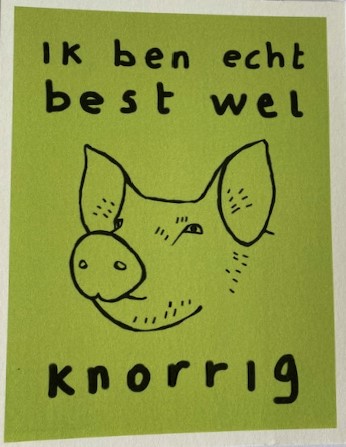 Ik ben echt
best wel
knorrig